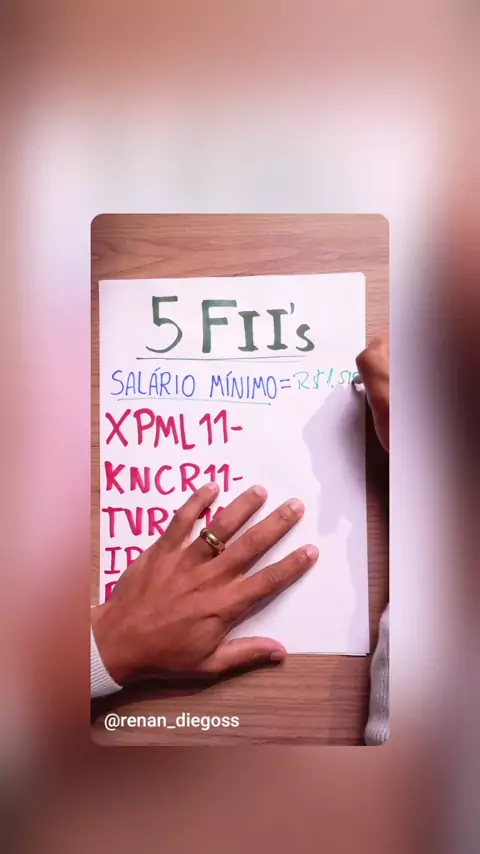 5 FII's
SALÁRIO MÍNIMO = R$1.51
XPML11-
KNCR11-
@renan_diegoss